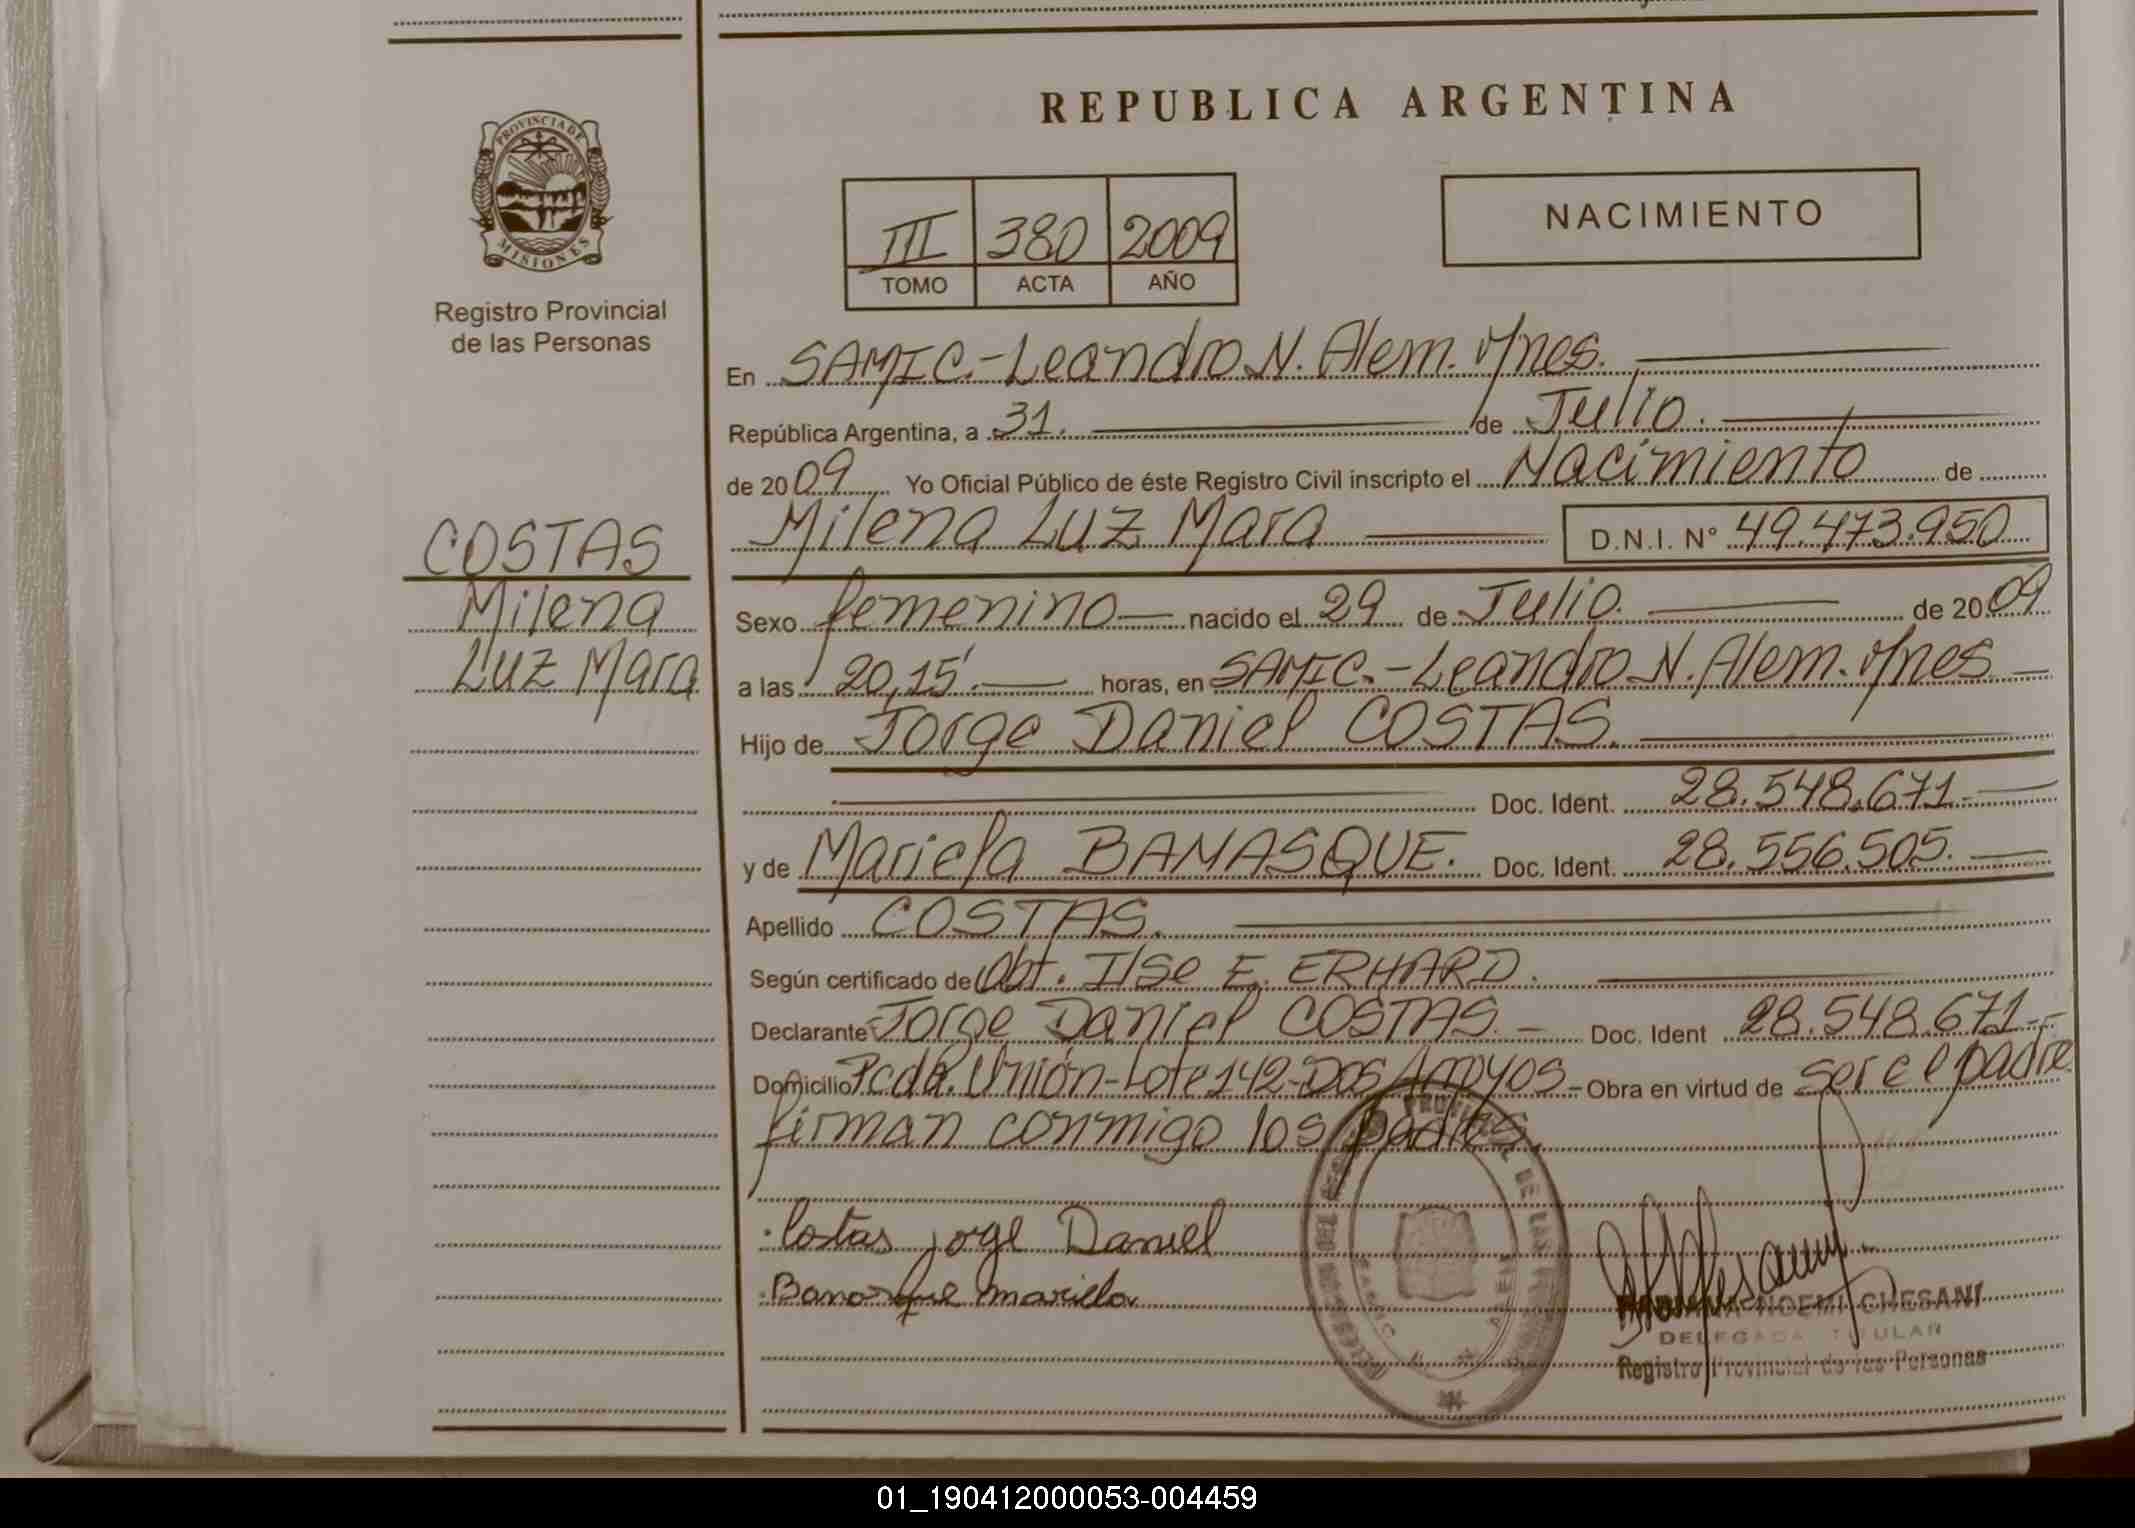 REPUBLICA ARGENTINA
PROVINCIA DE
MISIONES
Registro Provincial
de las Personas
III 380 2009
TOMO ACTA AÑO
NACIMIENTO
En SAMIC.-Leandro N. Alem. Mnes.
República Argentina, a 31. de Julio.
de 2009 Yo Oficial Público de éste Registro Civil inscripto el Nacimiento de
Milena Luz Mara D.N.I. N° 49.473.950
COSTAS
Milena
Luz Mara
Sexo femenino nacido el 29 de Julio. de 2009
a las 20,15'. horas, en SAMIC.-Leandro N. Alem. Mnes
Hijo de Jorge Daniel COSTAS.
Doc. Ident. 28.548.671
y de Mariela BANASQUE. Doc. Ident. 28.556.505.
Apellido COSTAS.
Según certificado de Obt. Ilse E. ERHARD.
Declarante Jorge Daniel COSTAS. Doc. Ident 28.548.671
Domicilio Pcda. Unión-Lote 142-Dos Arroyos- Obra en virtud de ser el padre
firman conmigo los padres.
Costas jorge Daniel
Banasque mariela
NOEMI CHESANI
DELEGADA TITULAR
Registro Provincial de las Personas
01_190412000053-004459